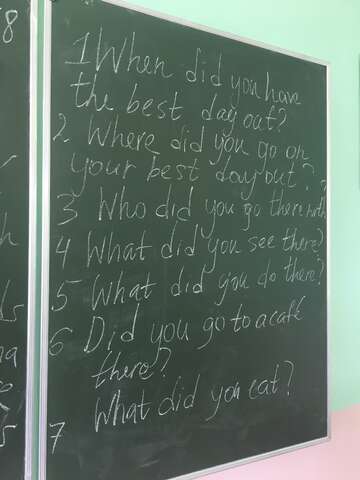 8
1 When did you have
the best day out?
2. Where did you go on
your best day out?
3 Who did you go there with?
4 What did you see there?
5 What did you do there?
6 Did you go to a café
there?
7 What did you eat?